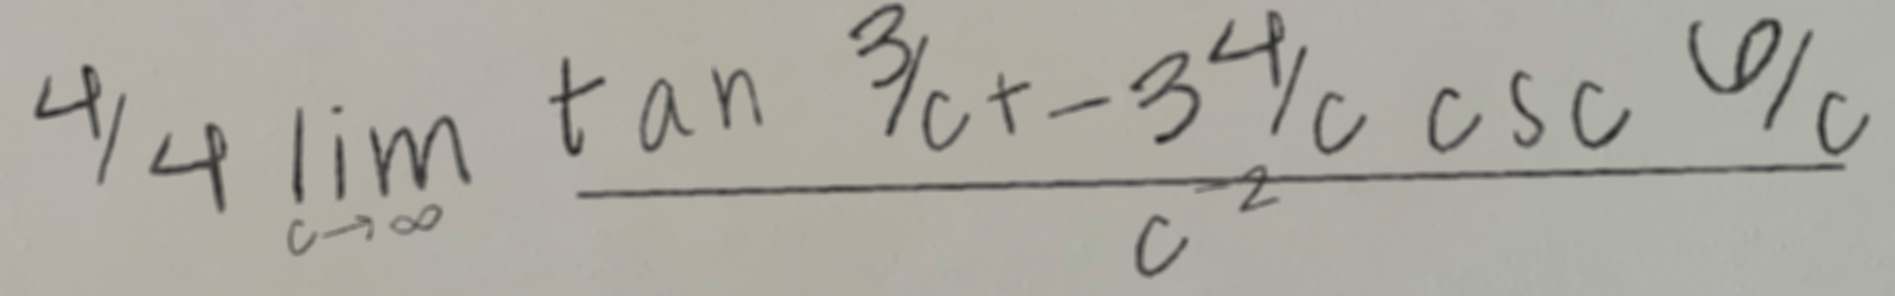 4/4 lim_{c→∞} \frac{tan 3/c + -3^{4/c} csc 6/c}{c^{-2}}